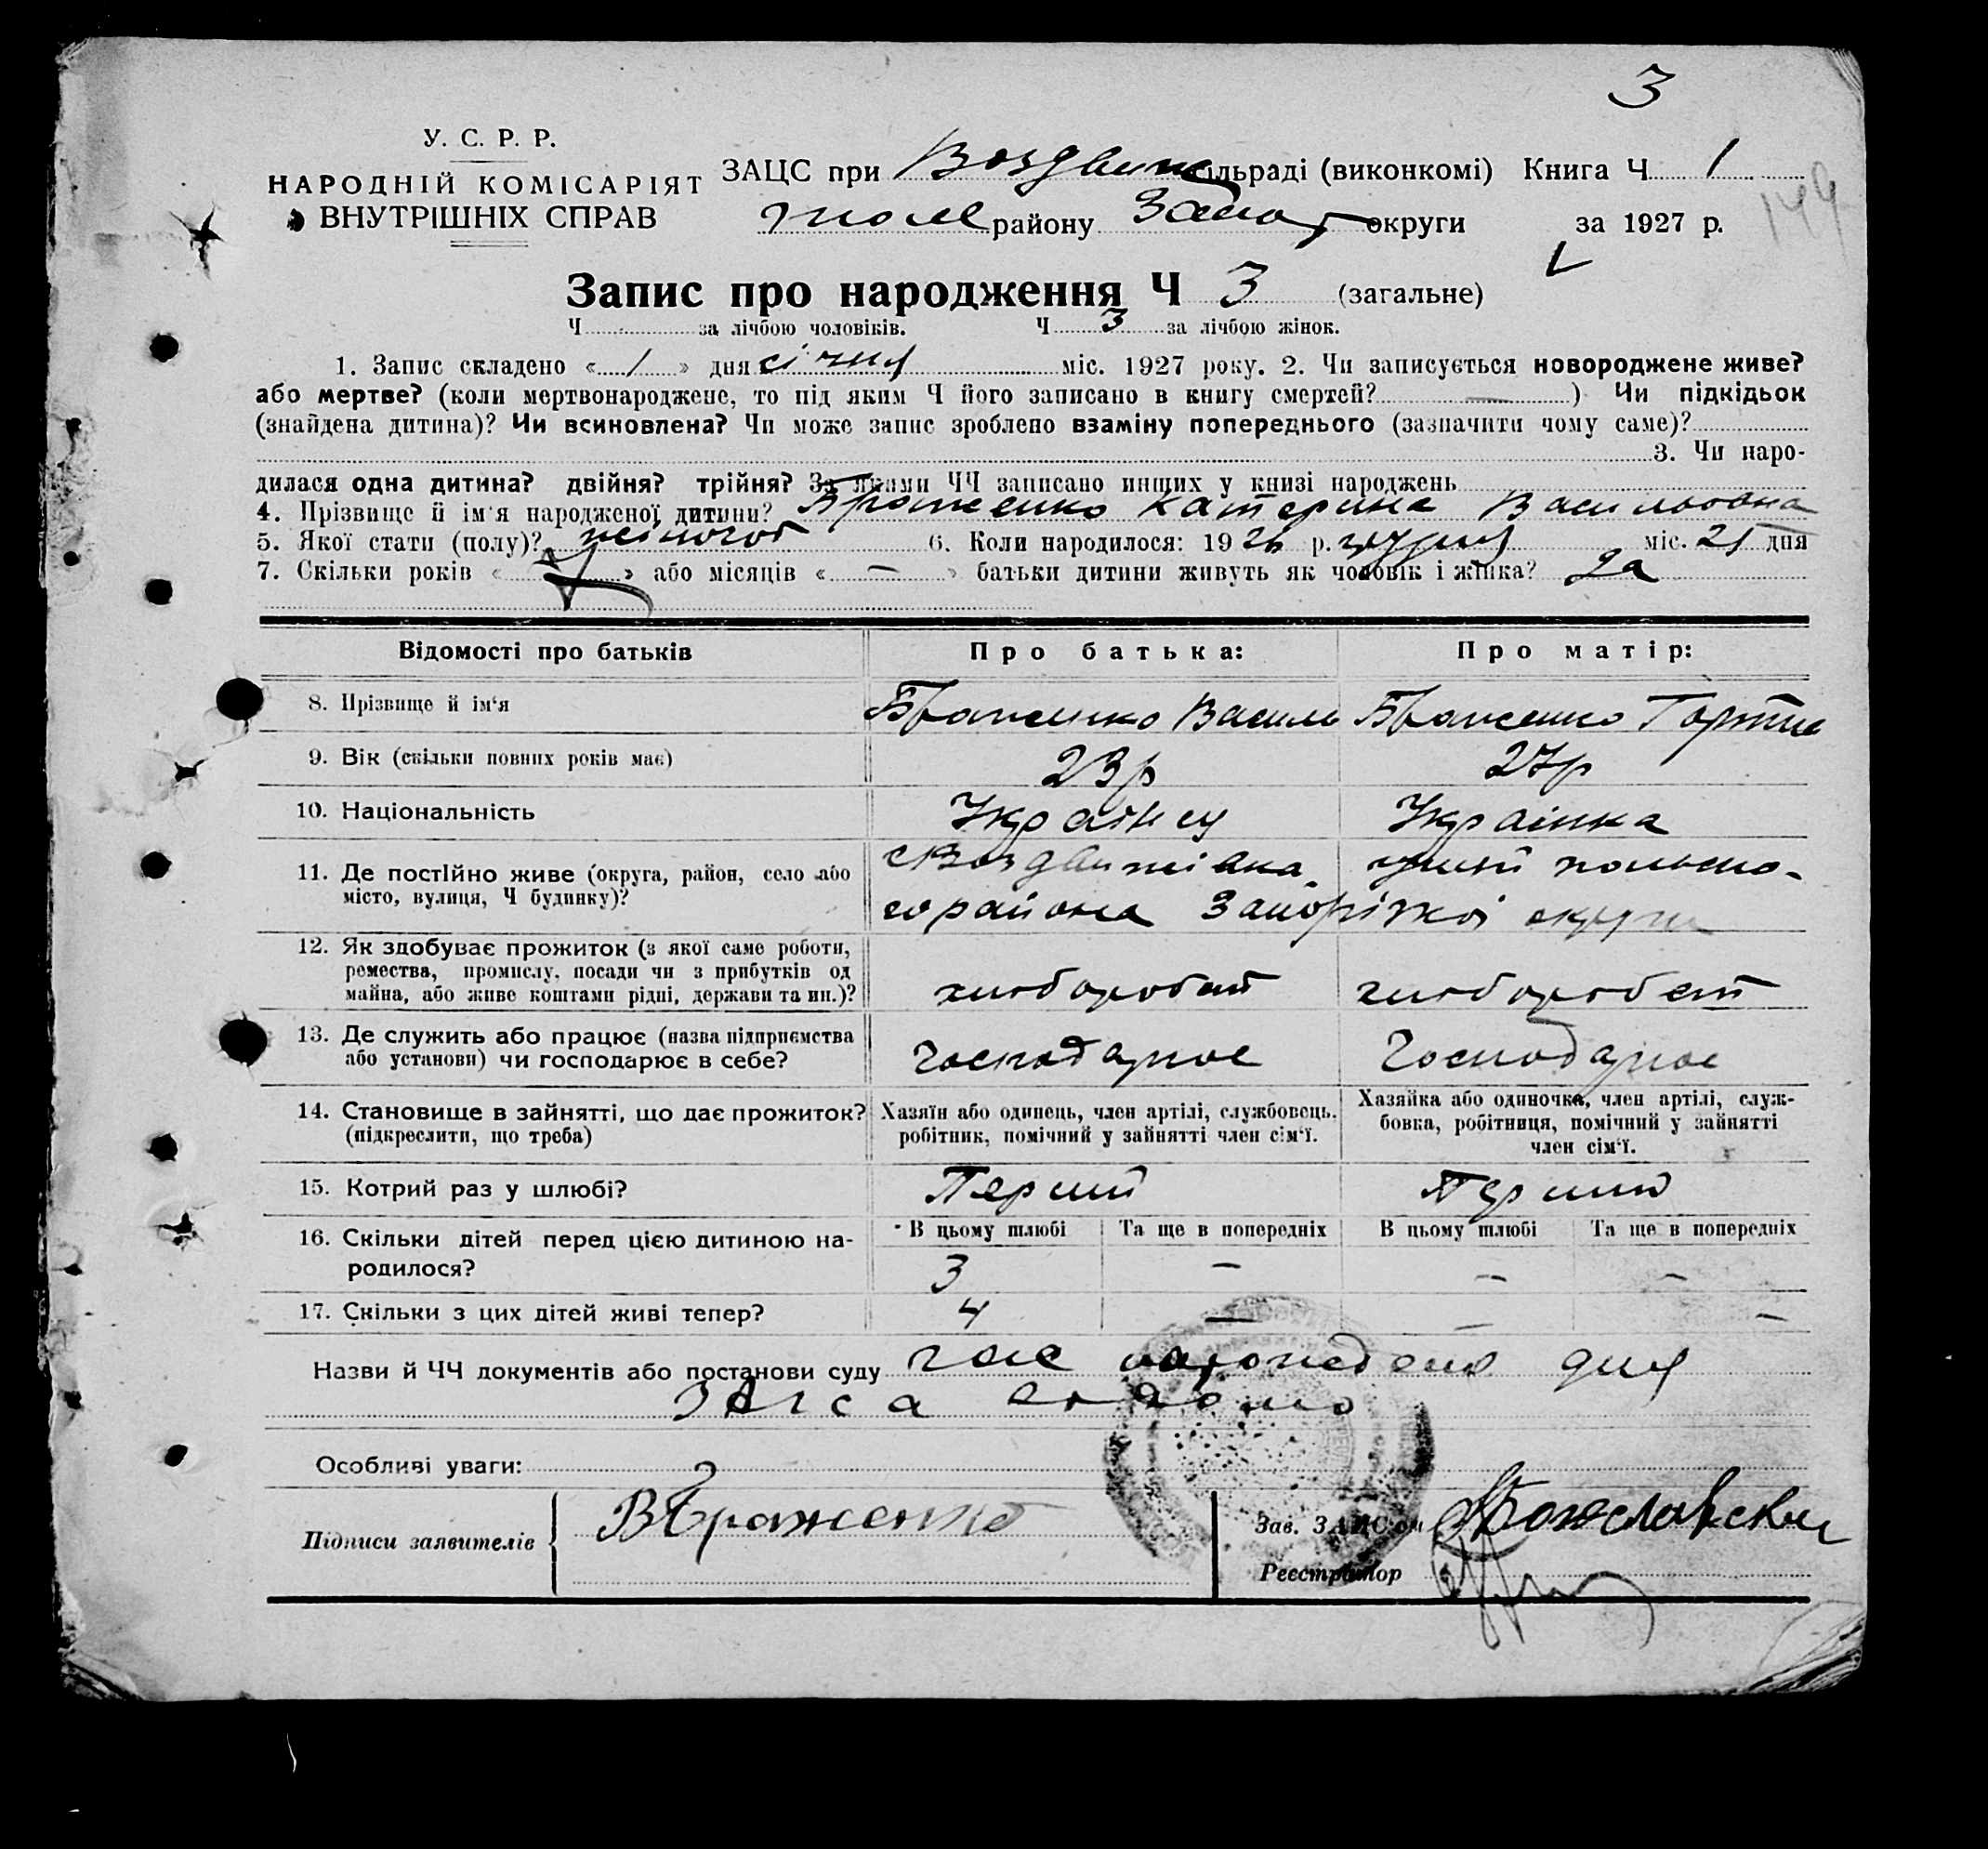 3
У. С. Р. Р.
НАРОДНІЙ КОМІСАРІЯТ
ВНУТРІШНІХ СПРАВ
ЗАЦС при Воздвиж сільраді (виконкомі) Книга Ч 1
району Запор округи за 1927 р.
149
Запис про народження Ч 3 (загальне)
Ч за лічбою чоловіків. Ч 3 за лічбою жінок.
1. Запис складено « 1 » дня січня міс. 1927 року. 2. Чи записується новороджене живе?
або мертве? (коли мертвонароджене, то під яким Ч його записано в книгу смертей? — ) Чи підкідьок
(знайдена дитина)? Чи всиновлена? Чи може запис зроблено взаміну попереднього (зазначити чому саме)?
3. Чи наро-
дилася одна дитина? двійня? трійня? За якими ЧЧ записано инших у книзі народжень
4. Прізвище й ім'я народженої дитини? Браженко Катерина Васильовна
5. Якої стати (полу)? жіночої 6. Коли народилося: 1926 р. грудня міс. 21 дня
7. Скільки років « » або місяців « — » батьки дитини живуть як чоловік і жінка? да
Відомості про батьків Про батька: Про матір:
8. Прізвище й ім'я Браженко Василь Браженко
9. Вік (скільки повних років має) 23р 27р
10. Національність Українец Українка
11. Де постійно живе (округа, район, село або місто, вулиця, Ч будинку)? с Воздвижівка
го района Запоріжкої округи
12. Як здобуває прожиток (з якої саме роботи, ремества, промислу, посади чи з прибутків од майна, або живе коштами рідні, держави та ин.)? хлібороб хлібороб
13. Де служить або працює (назва підприємства або установи) чи господарює в себе? Господарює Господарює
14. Становище в зайнятті, що дає прожиток? (підкреслити, що треба) Хазяїн або одинець, член артілі, службовець, робітник, помічний у зайнятті член сім'ї. Хазяйка або одиночка, член артілі, службовка, робітниця, помічний у зайнятті член сім'ї.
15. Котрий раз у шлюбі? Перший Перший
16. Скільки дітей перед цією дитиною народилося? В цьому шлюбі Та ще в попередніх В цьому шлюбі Та ще в попередніх
3 — — —
17. Скільки з цих дітей живі тепер? 4 — — —
Назви й ЧЧ документів або постанови суду для
ЗАГСа
Особливі уваги:
Підписи заявителів В Браженко Зав. ЗАЦС'ом
Реєстратор